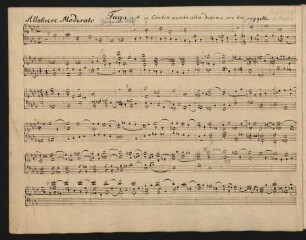 Allabreve Moderato Fuga a Contrapunto alla decima con tre soggetti